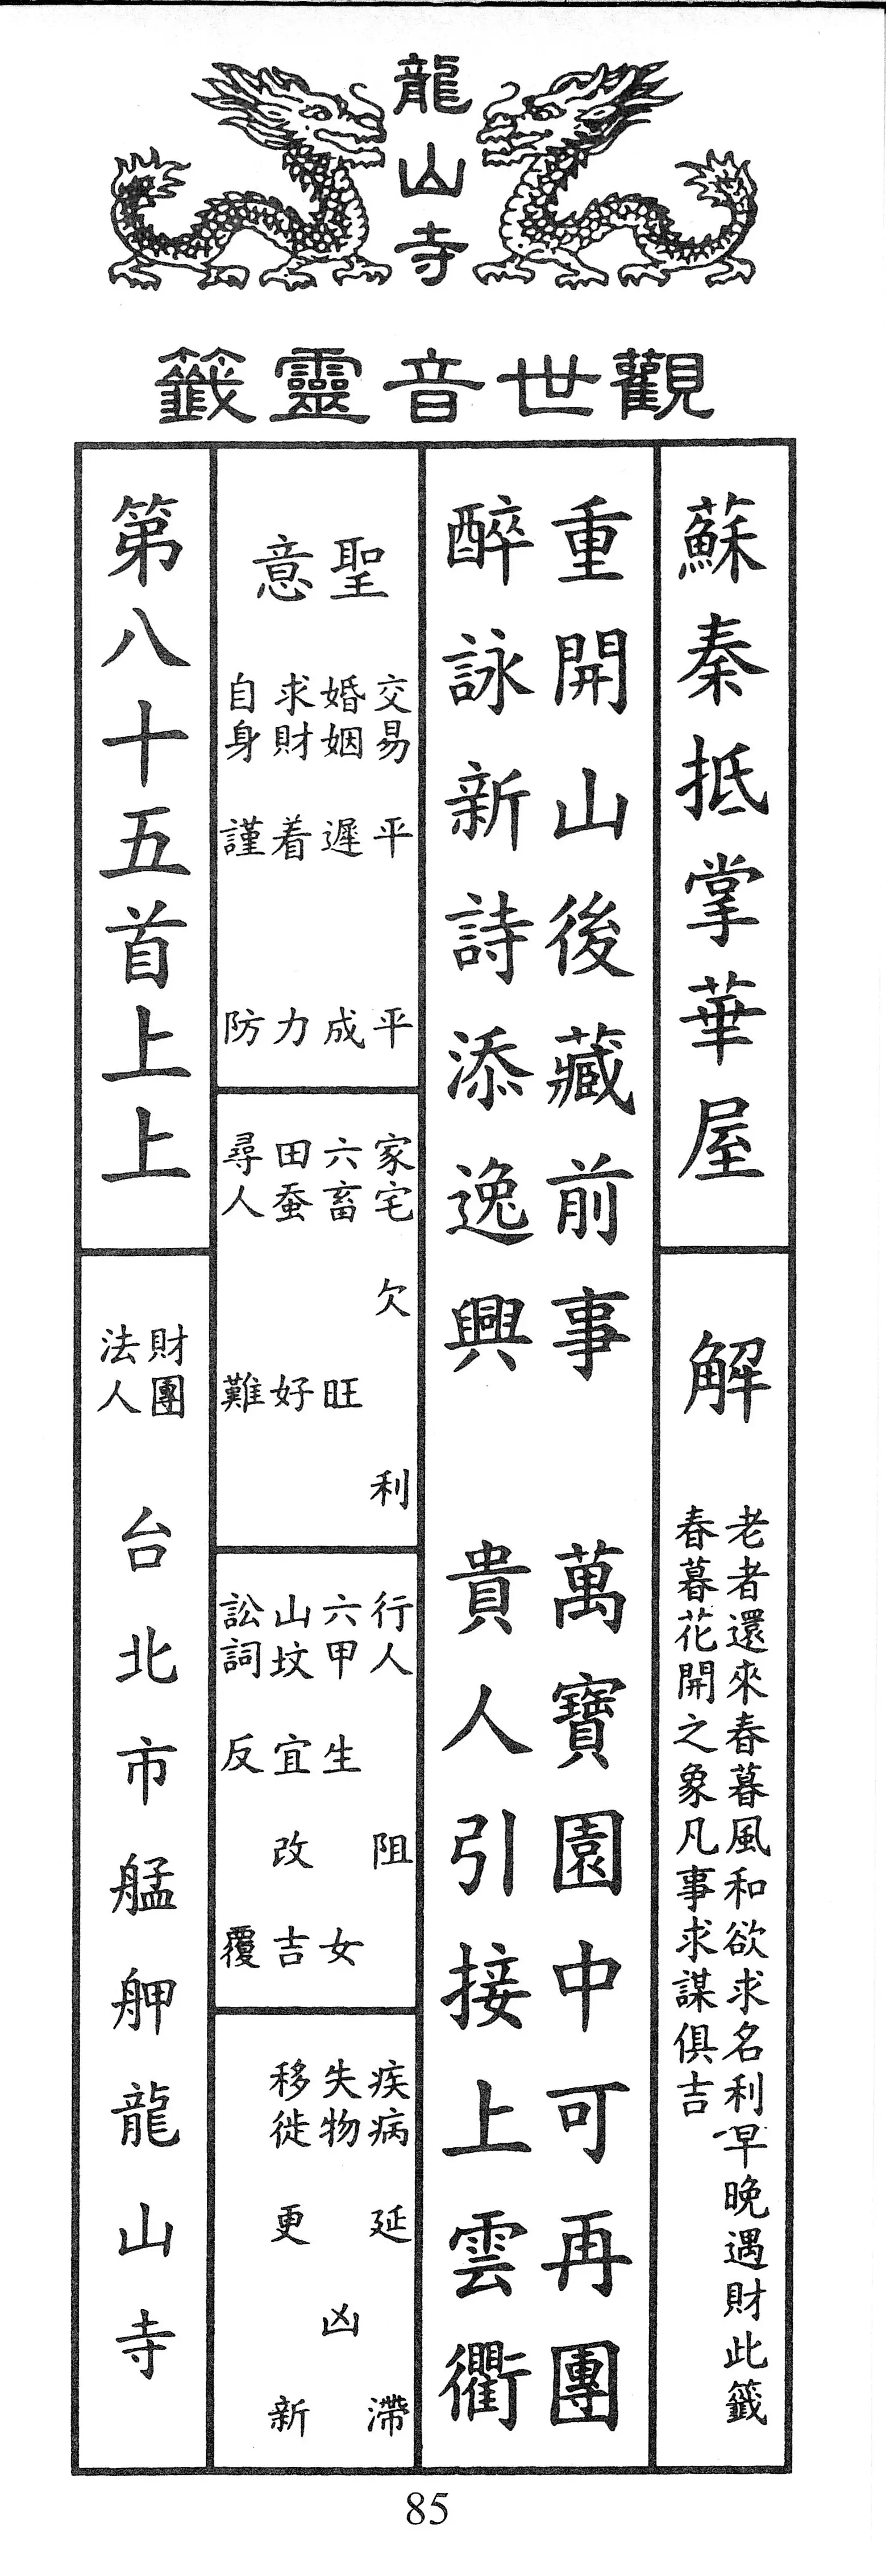 龍山寺
觀世音靈籤
蘇秦抵掌華屋
解
老者還來春暮風和欲求名利早晚遇財此籤
春暮花開之象凡事求謀俱吉
重開山後藏前事 萬寶園中可再團
醉詠新詩添逸興 貴人引接上雲衢
聖意
交易 平平
婚姻 遲成
求財 着力
自身 謹防
家宅 欠利
六畜 旺
田蚕 好
尋人 難
行人 阻
六甲 生女
山坟 宜改吉
訟詞 反覆
疾病 延滯
失物 凶
移徙 更新
第八十五首上上
財團
法人
台北市艋舺龍山寺
85